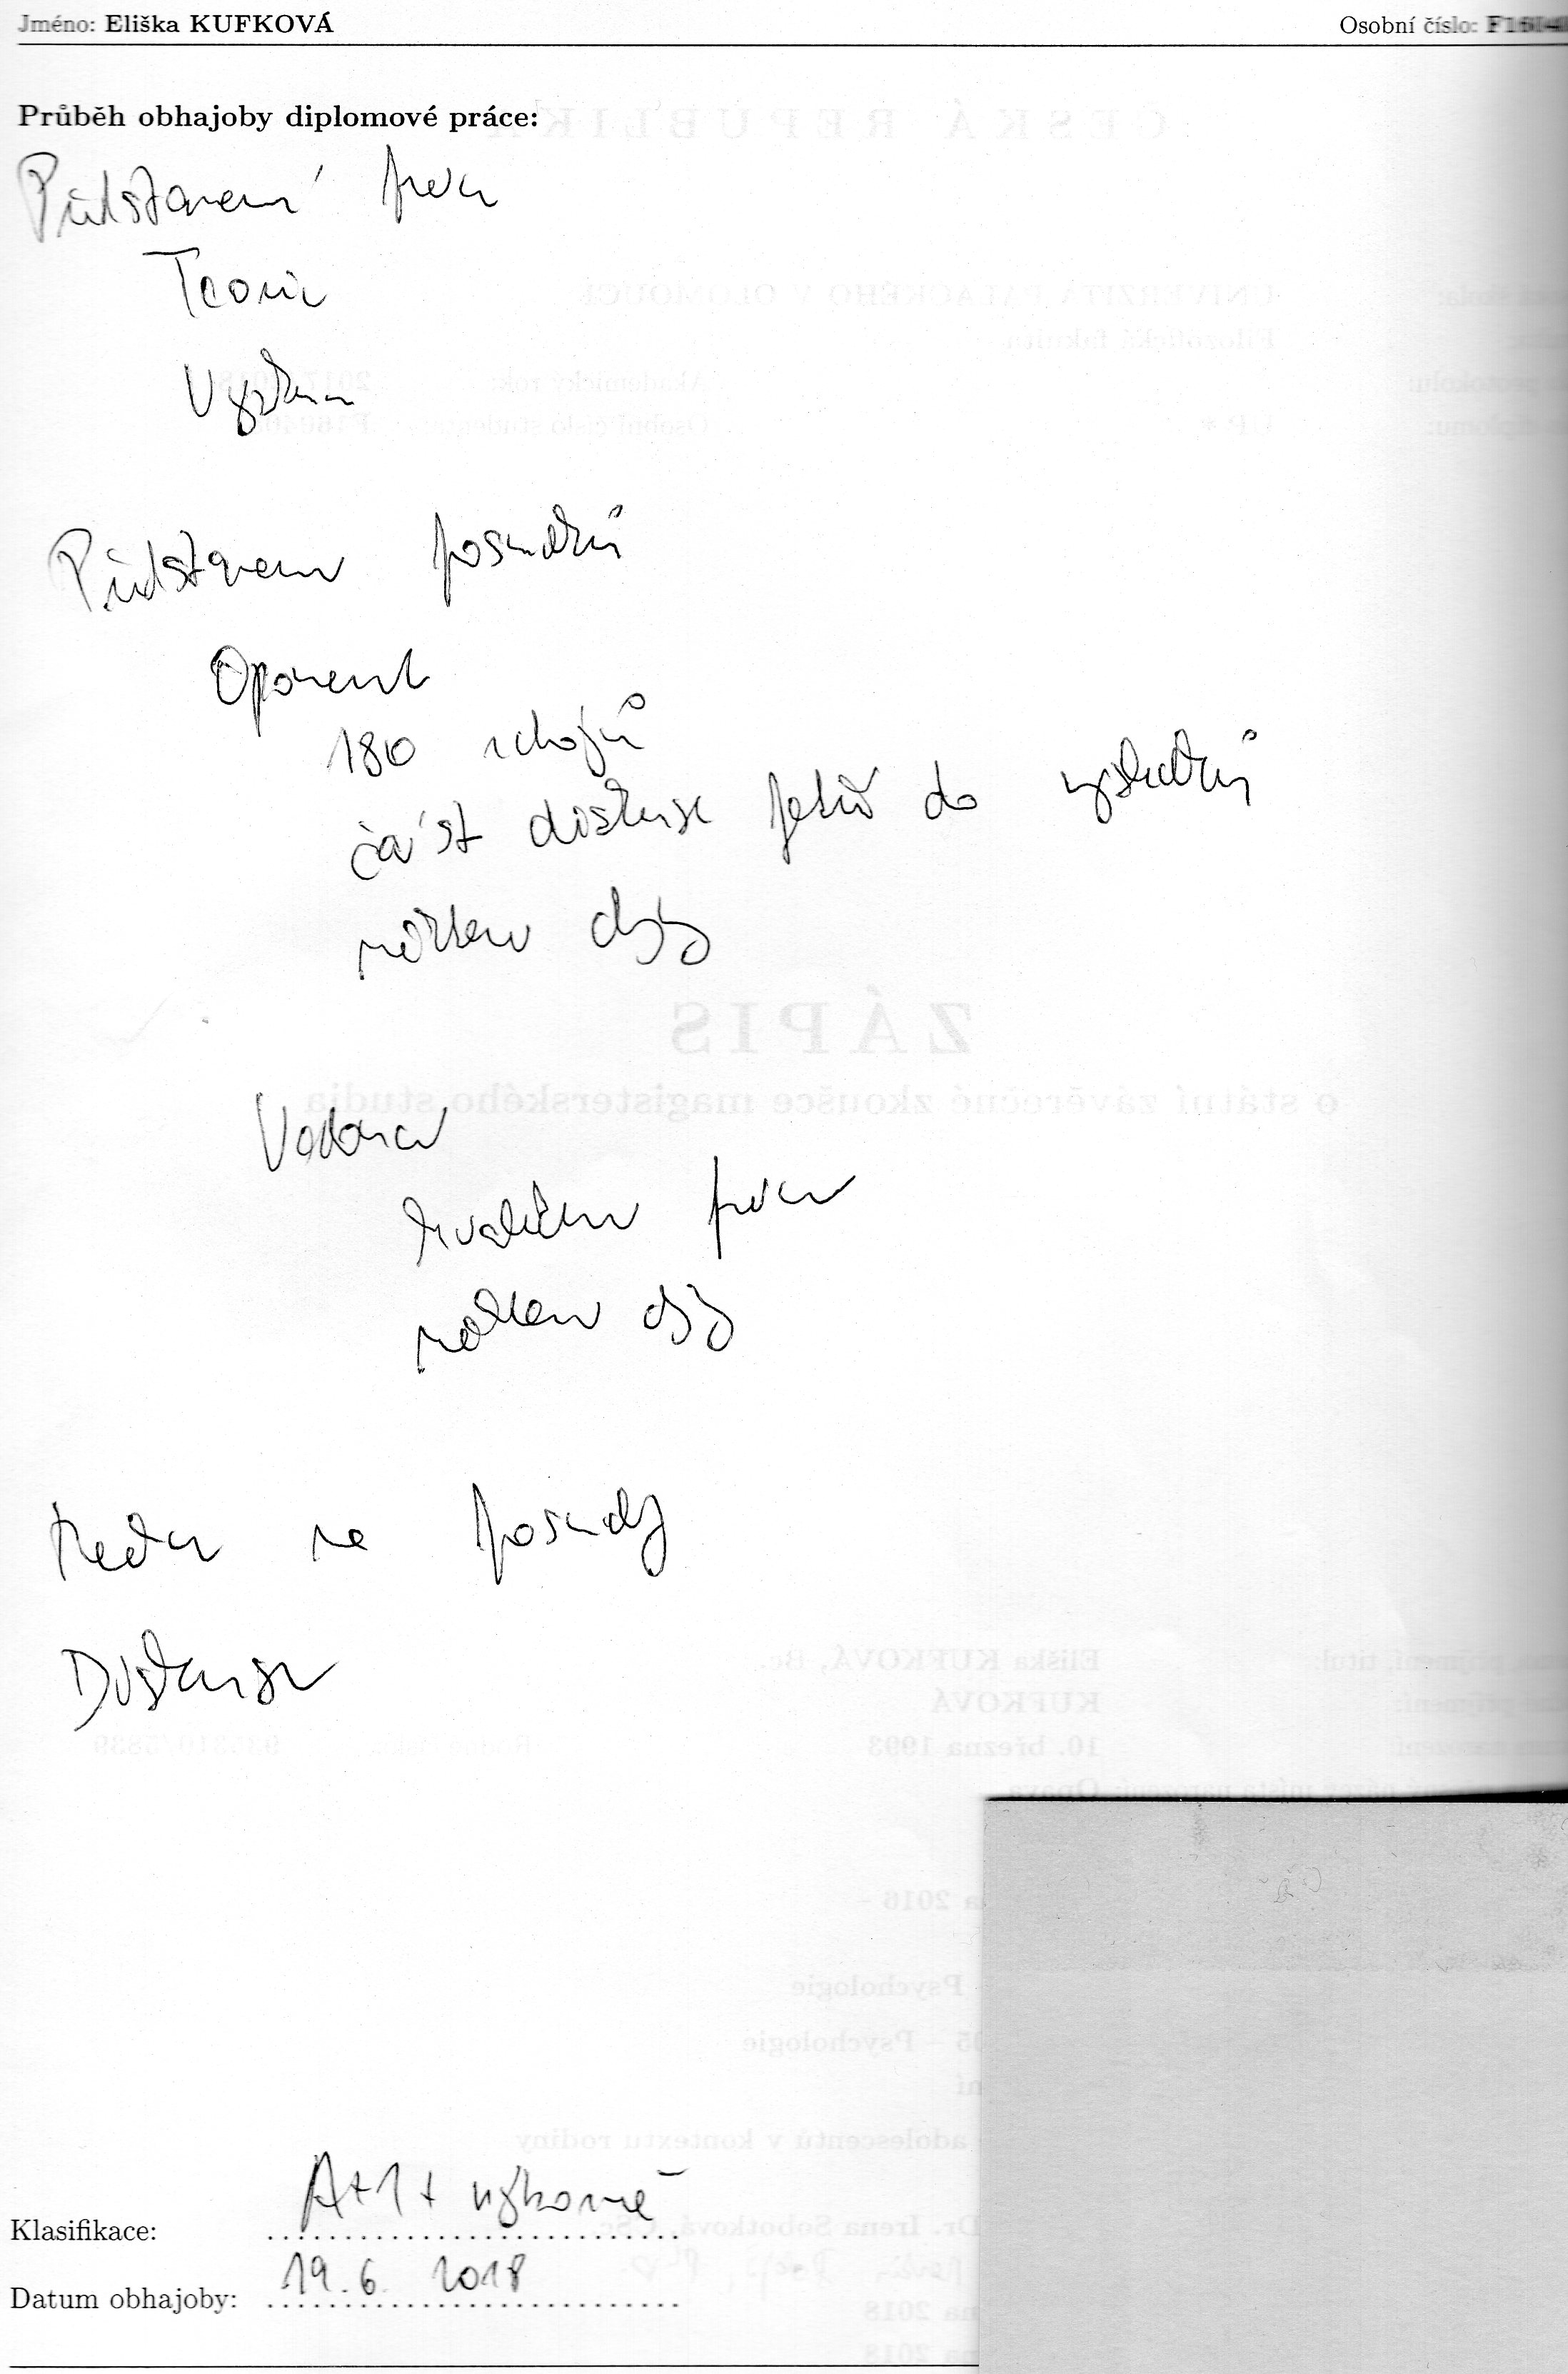 Jméno: Eliška KUFKOVÁ Osobní číslo:
Průběh obhajoby diplomové práce:
Představení práce
Teorie
Výzkum
Představení posudků
Oponent
180 zdrojů
část diskuse patří do výsledků
Vedoucí
kvalitní práce
Reakce na posudky
Diskuse
A+1+ výborně
Klasifikace:
19.6. 2018
Datum obhajoby: